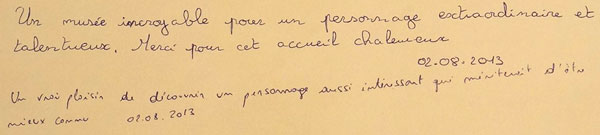 Un musée incroyable pour un personnage extraordinaire et
talentueux. Merci pour cet accueil chaleureux
02.08.2013
Un vrai plaisir de découvrir un personnage aussi intéressant qui mériterait d'être
mieux connu 02.08.2013